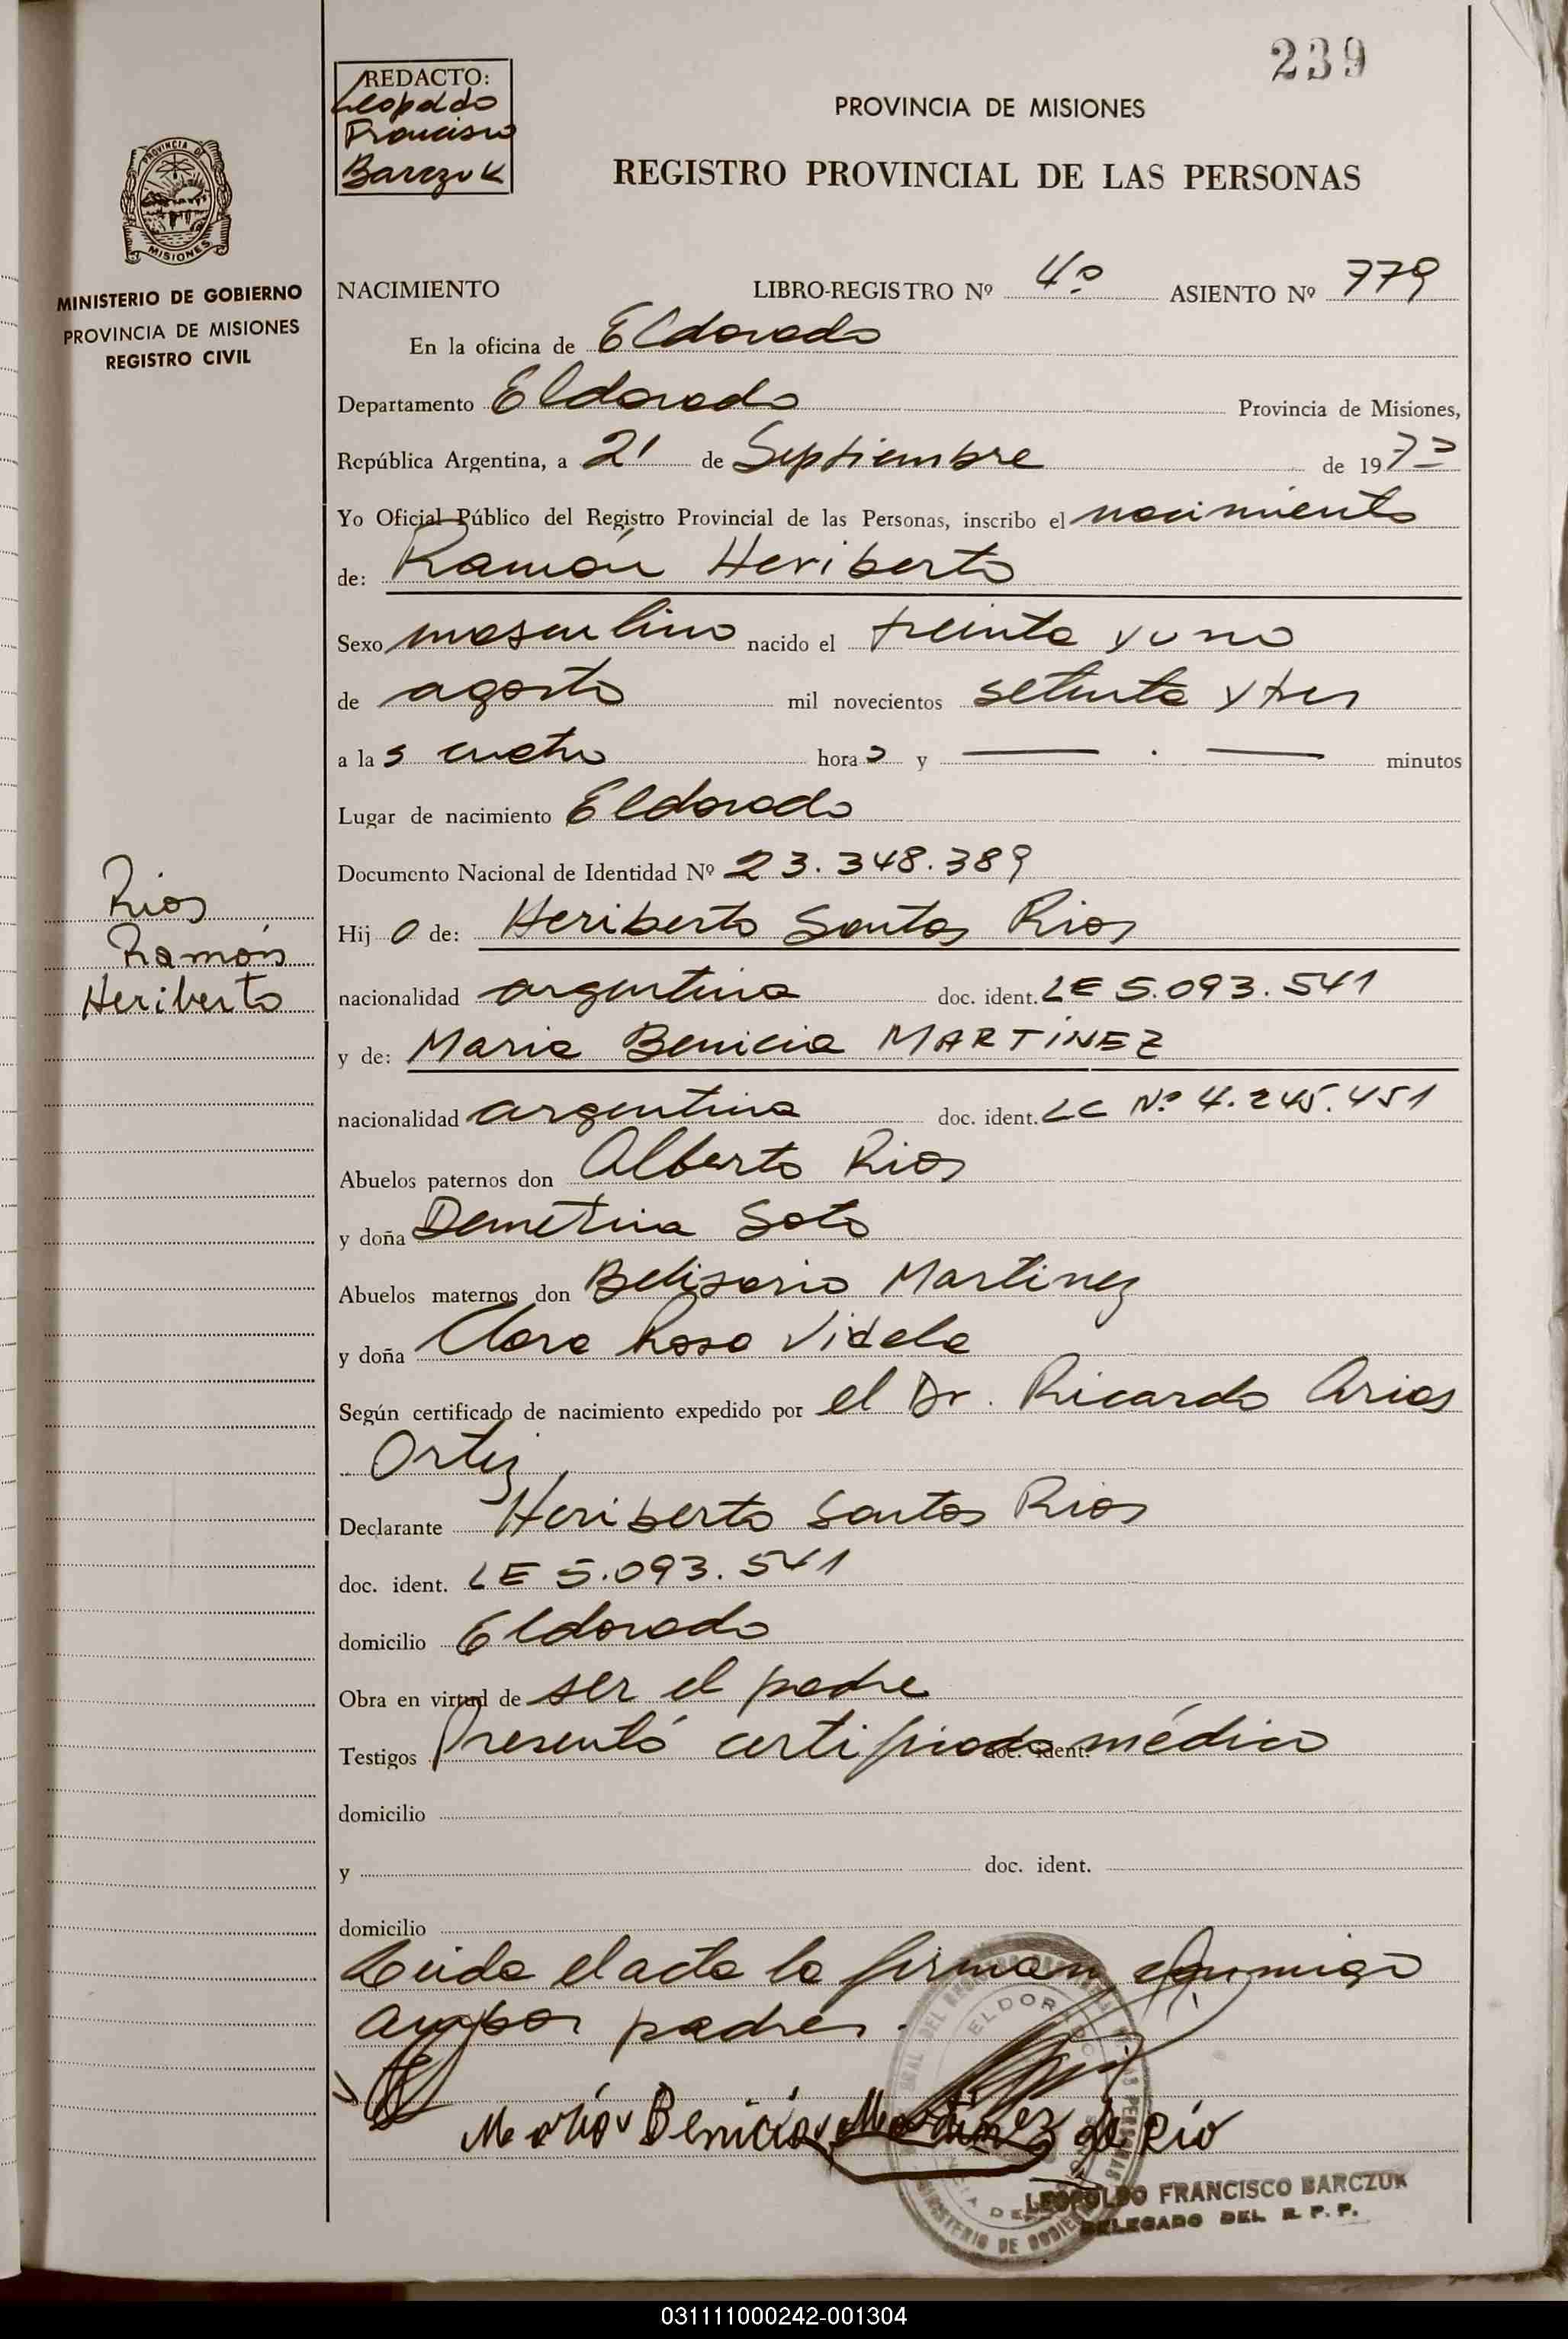 239
REDACTO:
Leopoldo
Francisco
Barczuk
PROVINCIA DE MISIONES
REGISTRO PROVINCIAL DE LAS PERSONAS
PROVINCIA DE
MISIONES
MINISTERIO DE GOBIERNO
PROVINCIA DE MISIONES
REGISTRO CIVIL
NACIMIENTO LIBRO-REGISTRO Nº 4º ASIENTO Nº 779
En la oficina de Eldorado
Departamento Eldorado Provincia de Misiones,
República Argentina, a 21 de Septiembre de 1973
Yo Oficial Público del Registro Provincial de las Personas, inscribo el nacimiento
de: Ramón Heriberto
Sexo masculino nacido el treinta y uno
de agosto mil novecientos setenta y tres
a las cuatro horas y — . — minutos
Lugar de nacimiento Eldorado
Documento Nacional de Identidad Nº 23.348.389
Rios
Ramón
Heriberto
Hijo de: Heriberto Santos Rios
nacionalidad argentina doc. ident. LE 5.093.541
y de: Maria Benicia MARTÍNEZ
nacionalidad argentina doc. ident. LC Nº 4.245.451
Abuelos paternos don Alberto Rios
y doña Demetria Soto
Abuelos maternos don Belisario Martinez
y doña Clara Rosa Videla
Según certificado de nacimiento expedido por el Dr. Ricardo Arios
Ortiz
Declarante Heriberto Santos Rios
doc. ident. LE 5.093.541
domicilio Eldorado
Obra en virtud de ser el padre
Testigos Presentó certificado médico doc. ident.
domicilio
y doc. ident.
domicilio
Leida el acta la firman conmigo
ambos padres.
Maria Benicia Martinez de Rio
ELDORADO
MINISTERIO DE GOBIERNO
LEOPOLDO FRANCISCO BARCZUK
DELEGADO DEL R. P. P.
031111000242-001304